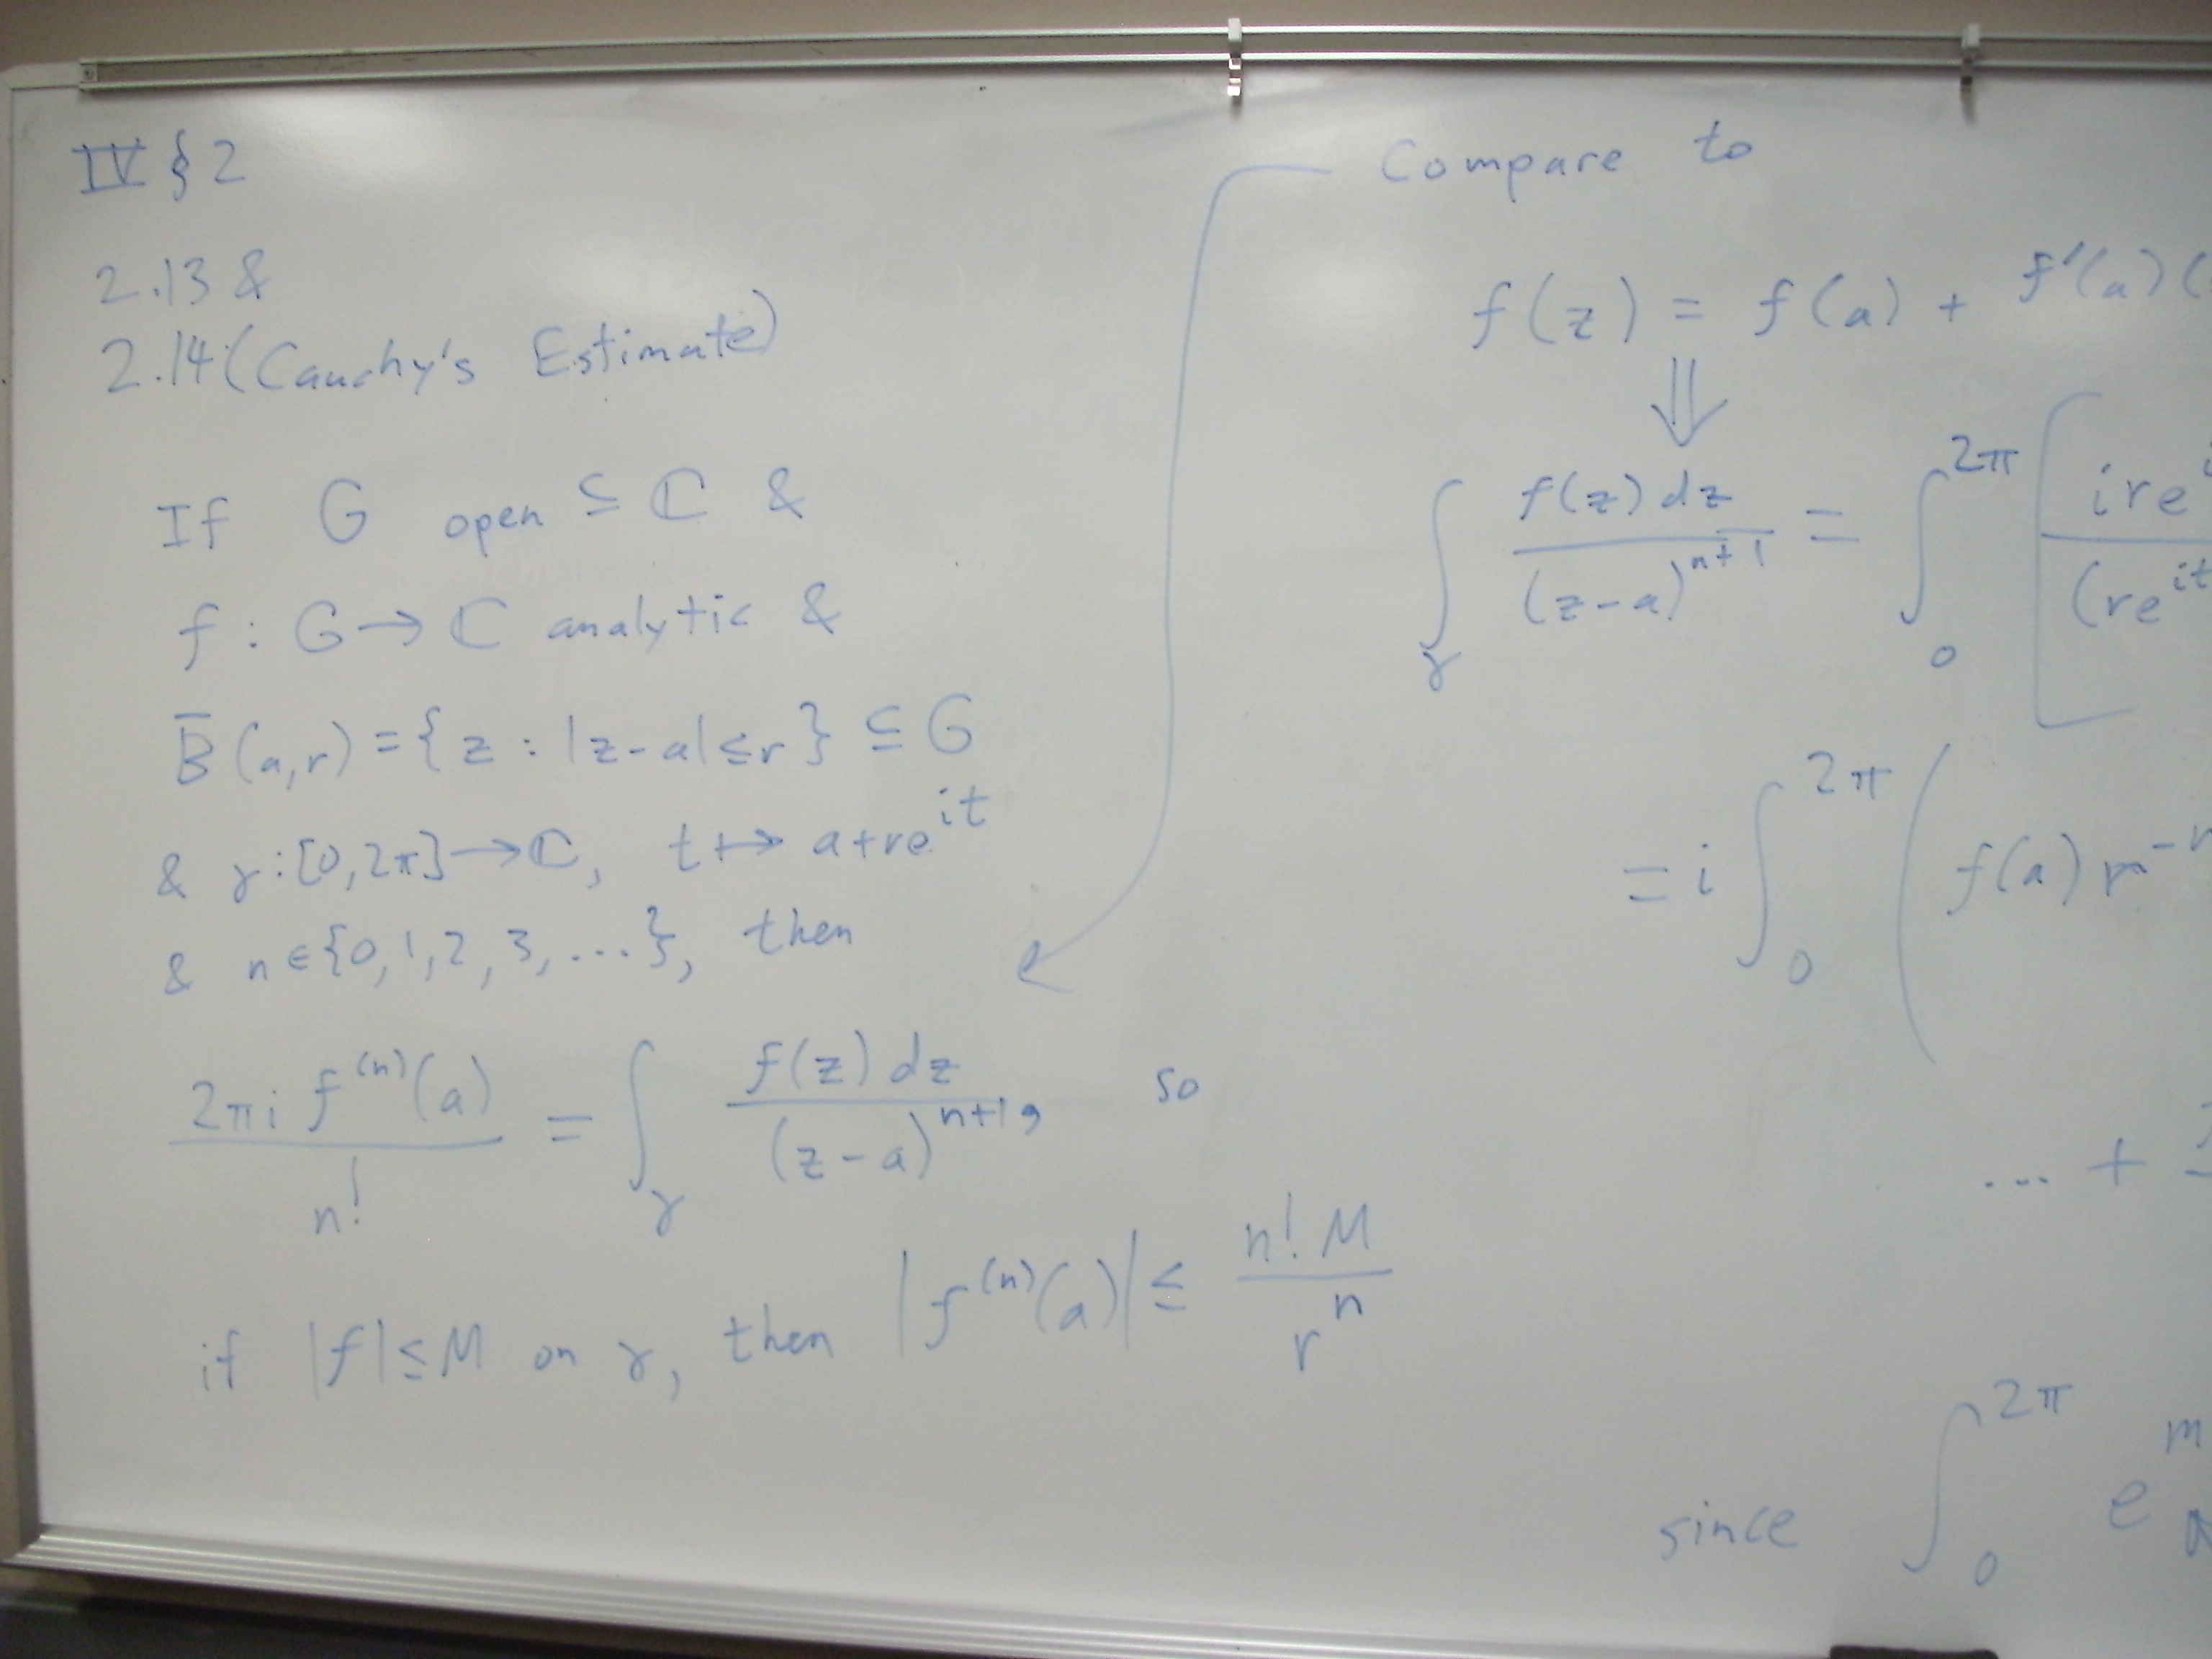 IV § 2
2.13 &
2.14 (Cauchy's Estimate)
If G open ⊆ ℂ &
f : G → ℂ analytic &
B̅(a,r) = {z : |z-a| ≤ r} ⊆ G
& γ : [0,2π] → ℂ, t ↦ a+re^{it}
& n ∈ {0,1,2,3,...}, then
\frac{2πi f^{(n)}(a)}{n!} = ∫_γ \frac{f(z) dz}{(z-a)^{n+1}}, so
if |f| ≤ M on γ, then |f^{(n)}(a)| ≤ \frac{n! M}{r^n}
Compare to
f(z) = f(a) + f'(a)(
⇓
∫_γ \frac{f(z) dz}{(z-a)^{n+1}} = ∫_0^{2π} [ \frac{ire^{i}}{(re^{it}}
= i ∫_0^{2π} ( f(a) r^{-n}
... +
since ∫_0^{2π} e^{m}